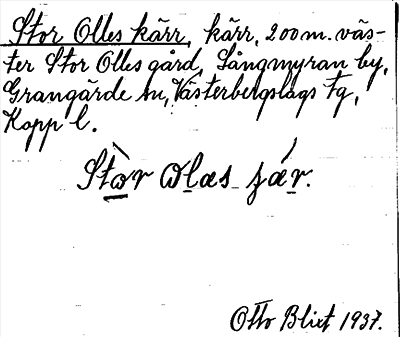 Stor Olles kärr, kärr, 200 m. väs-
ter Stor Olles gård, Sångmyran by,
Grangärde sn, Västerbergslags fg,
Kopp l.
Stòr ωlæs jár.
Otto Blixt 1937.